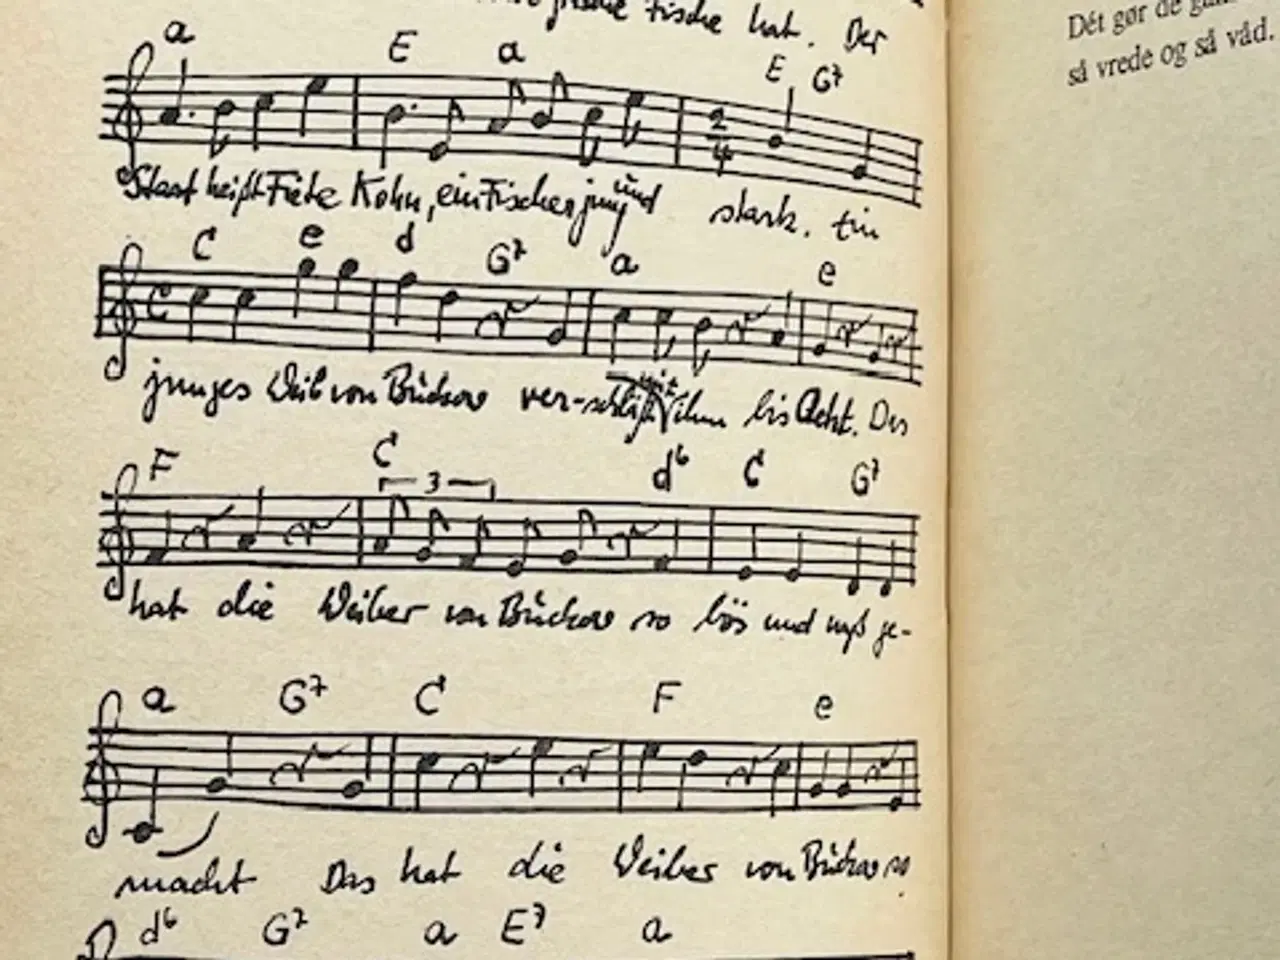 frische Fische hat. Der
a E a E G7
2/4
Staat heißt Fiete Kohn, ein Fischer jung und stark. Ein
C e d G7 a e
junges Weib von Bückow ver-schläft mit ihm bis Acht. Das
F C 3 d6 C G7
hat die Weiber von Bückow so bös und naß ge-
a G7 C F e
macht Das hat die Weiber von Bückow so
d6 G7 a E7 a
Dét gør de
så vrede og så våd.